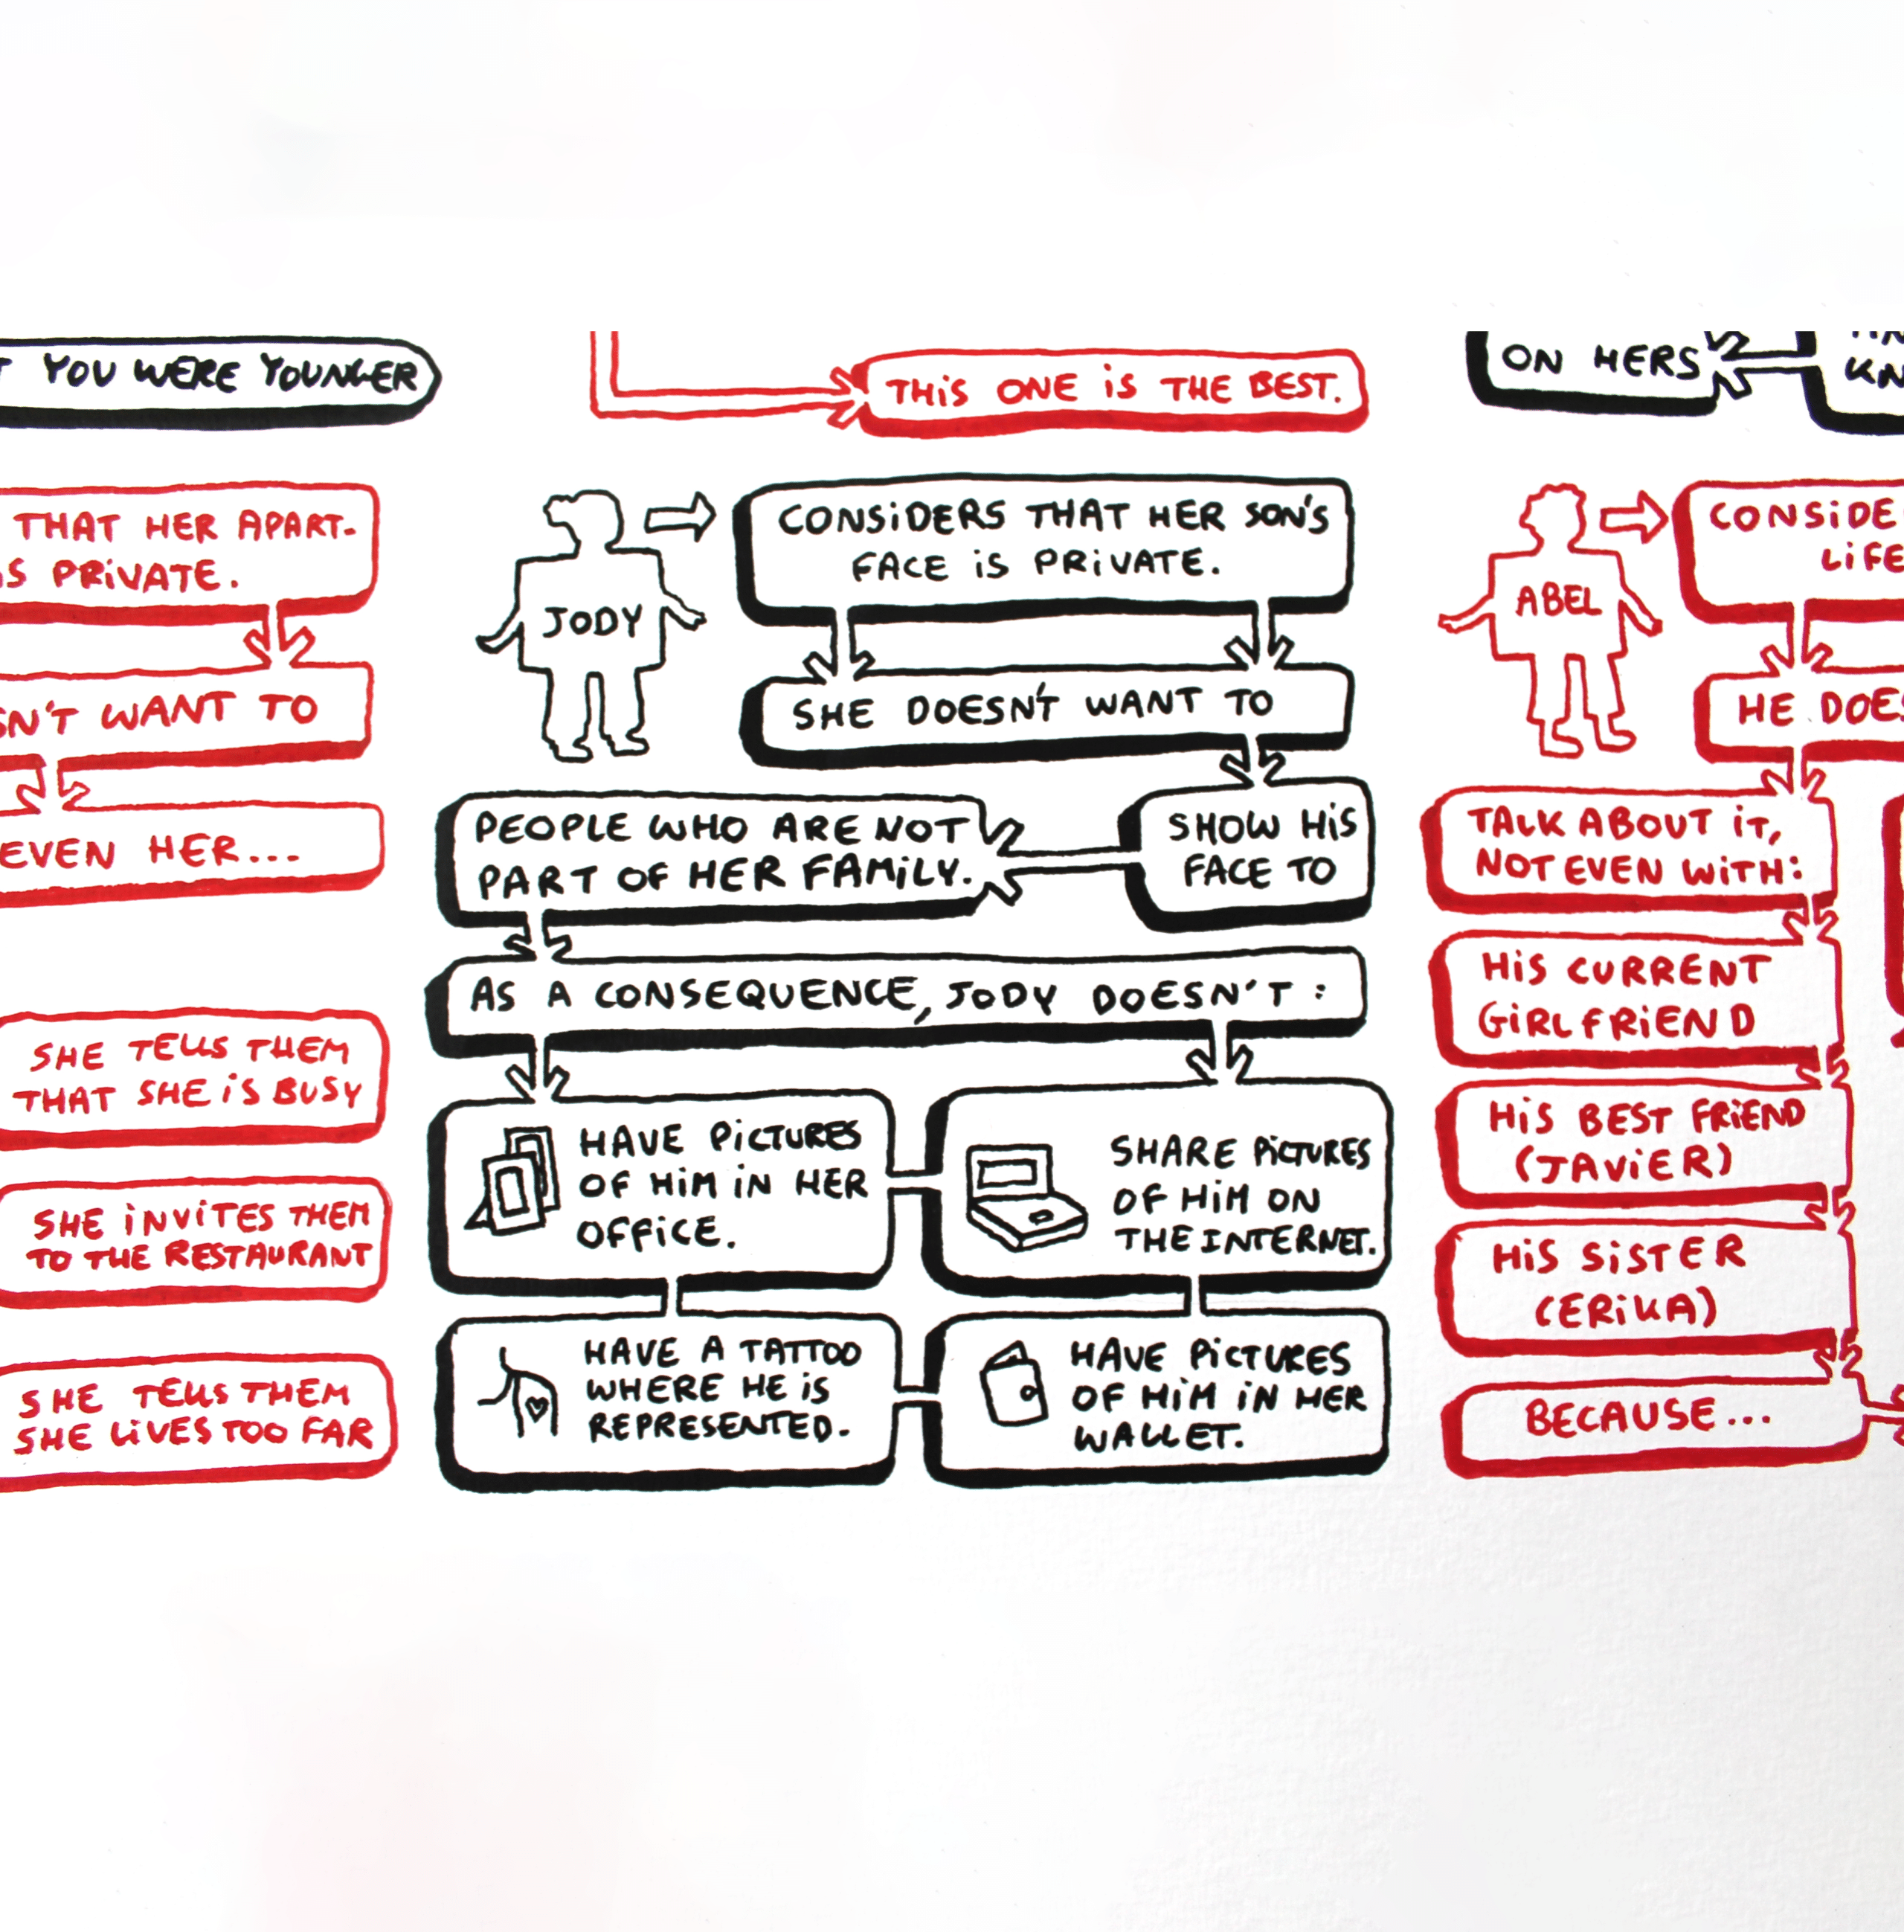 YOU WERE YOUNGER
THIS ONE IS THE BEST.
ON HERS
THAT HER APART-
IS PRIVATE.
WANT TO
EVEN HER...
SHE TELLS THEM
THAT SHE IS BUSY
SHE INVITES THEM
TO THE RESTAURANT
SHE TELLS THEM
SHE LIVES TOO FAR
JODY
CONSIDERS THAT HER SON'S
FACE IS PRIVATE.
SHE DOESN'T WANT TO
SHOW HIS
FACE TO
PEOPLE WHO ARE NOT
PART OF HER FAMILY.
AS A CONSEQUENCE, JODY DOESN'T :
HAVE PICTURES
OF HIM IN HER
OFFICE.
SHARE PICTURES
OF HIM ON
THE INTERNET.
HAVE A TATTOO
WHERE HE IS
REPRESENTED.
HAVE PICTURES
OF HIM IN HER
WALLET.
ABEL
LIFE
HE
TALK ABOUT IT,
NOT EVEN WITH:
HIS CURRENT
GIRLFRIEND
HIS BEST FRIEND
(JAVIER)
HIS SISTER
(ERIKA)
BECAUSE...